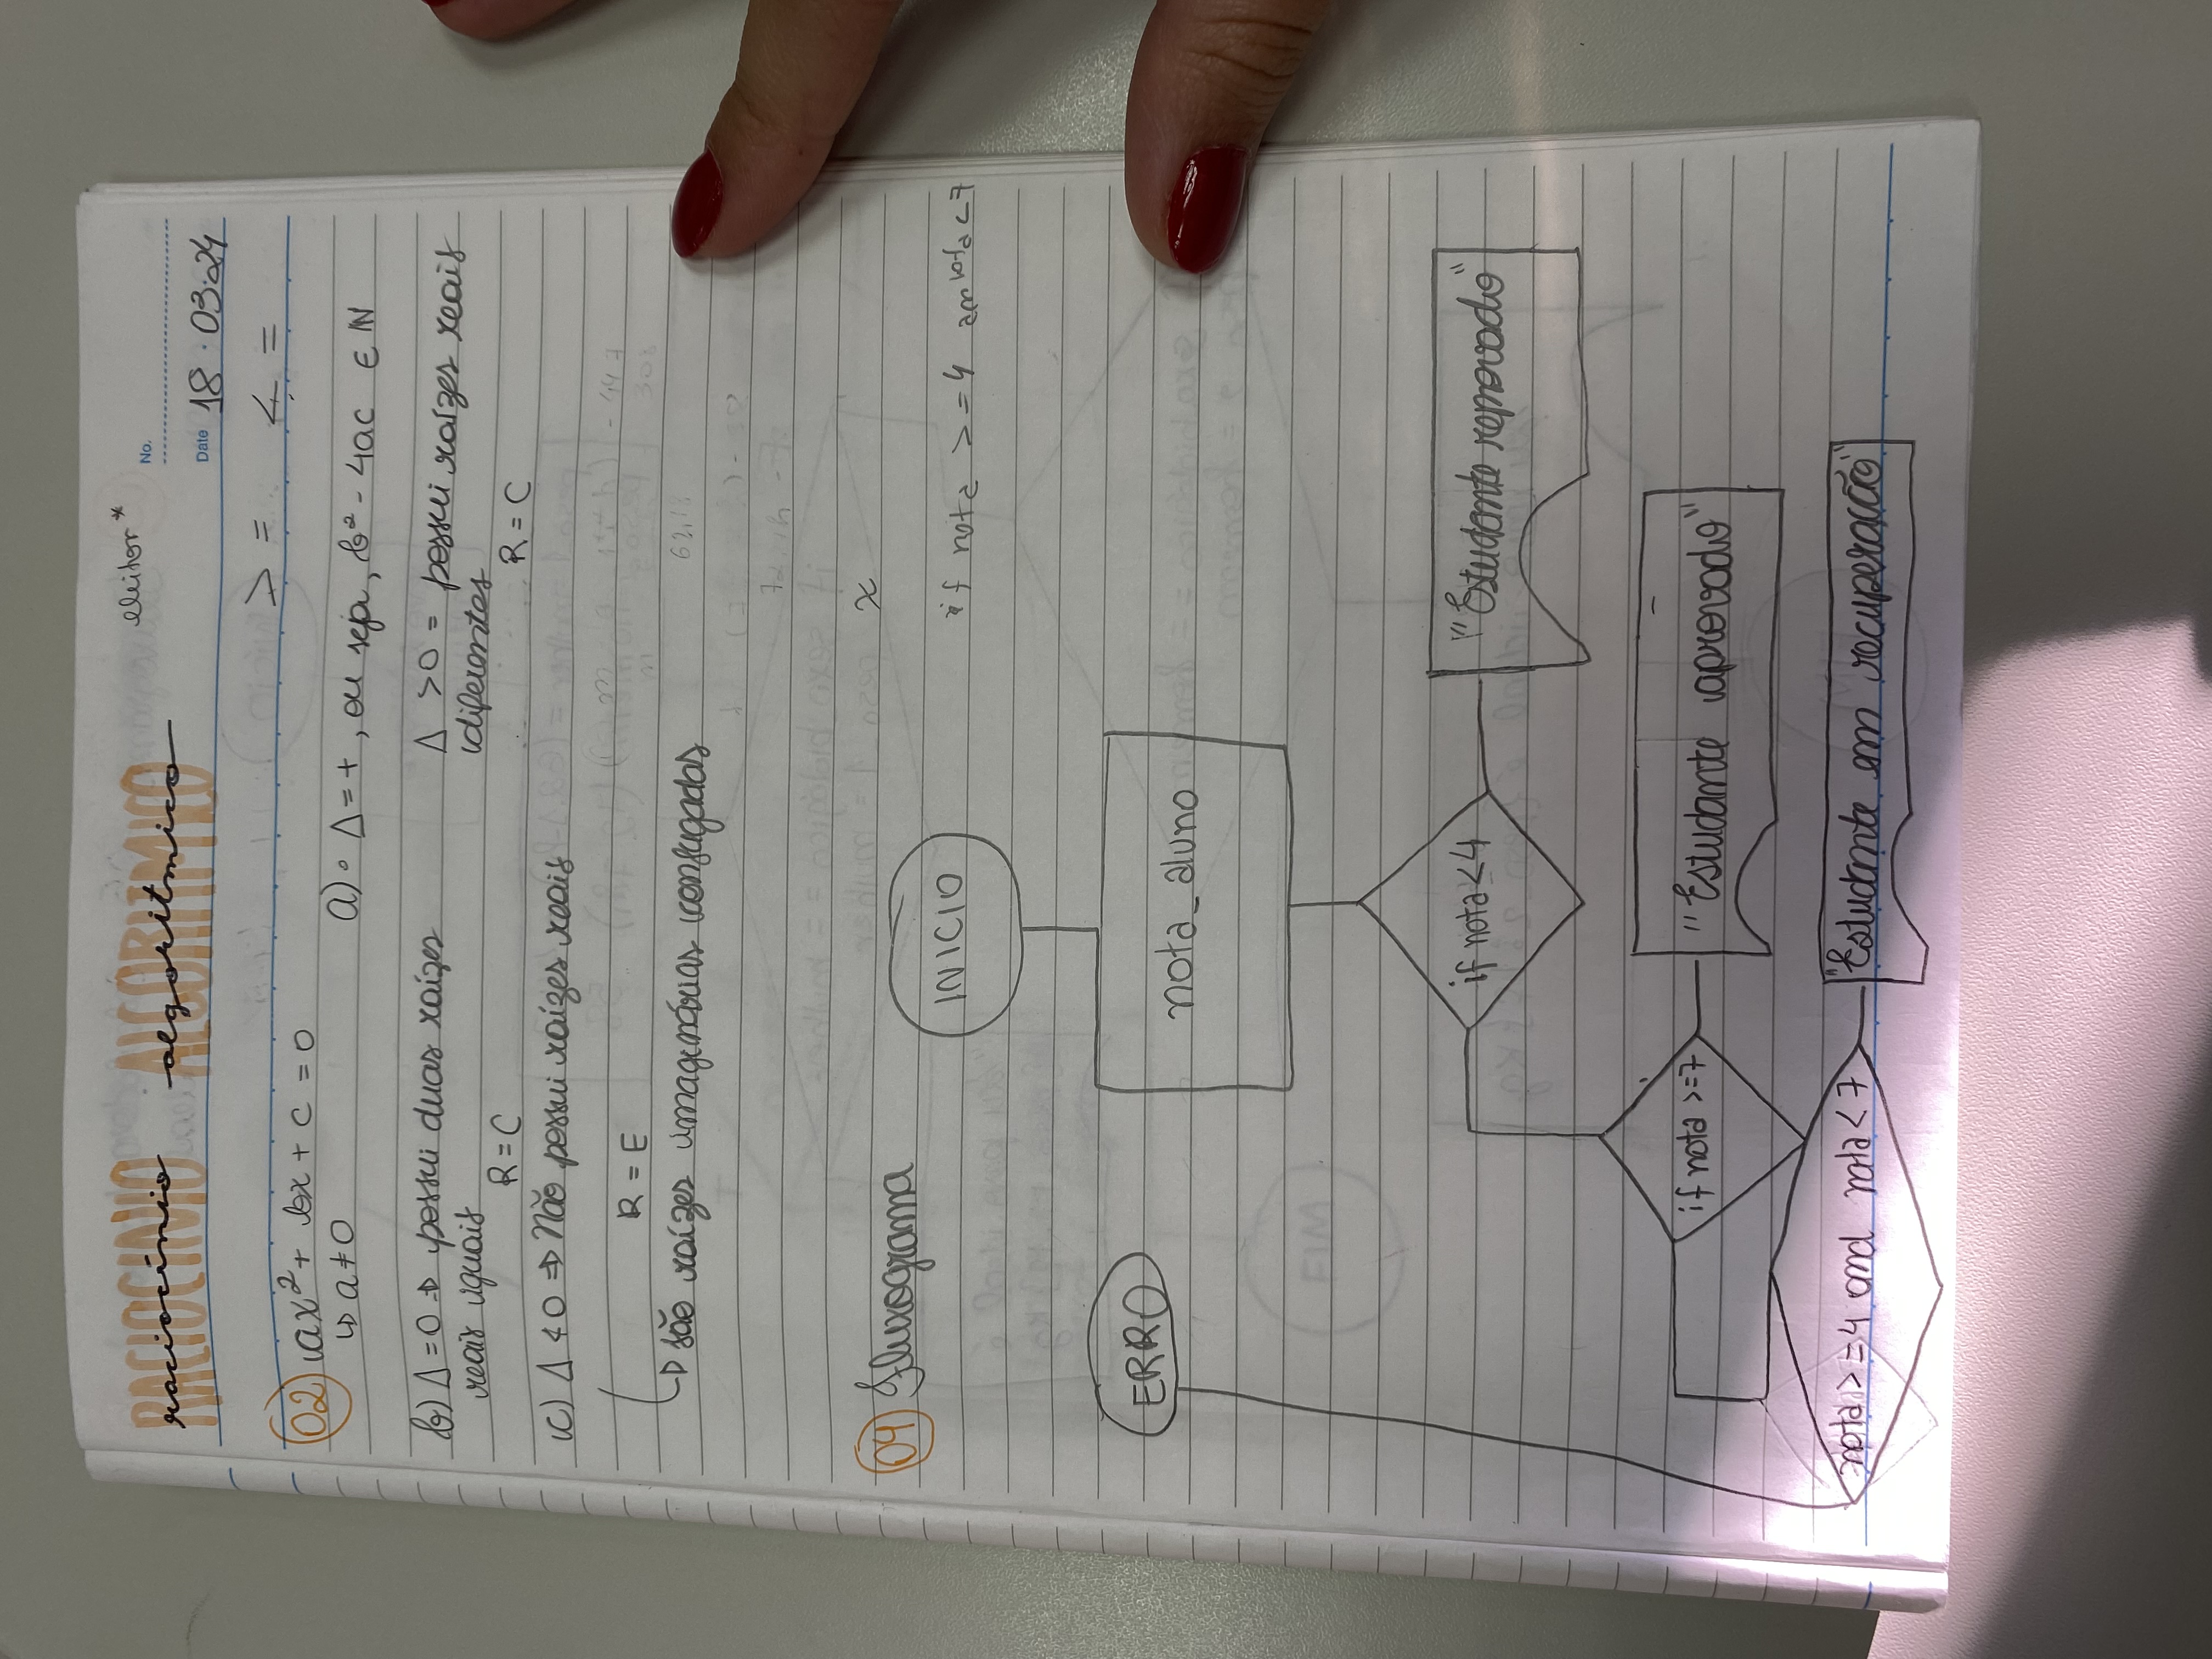 RACIOCINIO ALGORITMICO
raciocínio algoritmico
eleitor *
No.
Date 18 · 03·24
> = < =
02 ax² + bx + c = 0
↳ a ≠ 0
a) • Δ = + , ou seja, b² - 4ac ∈ IN
b) Δ = 0 ⇒ possui duas raízes
reais iguais
R = C
Δ > 0 = possui raízes reais
diferentes
R = C
c) Δ < 0 ⇒ Não possui raízes reais
R = E
↳ são raízes imaginárias conjugadas
x
04 Fluxograma
INICIO
if nota >= 4 and nota < 7
ERRO
nota_aluno
if nota < 4
"Estudante reprovado"
if nota >= 7
"Estudante aprovado"
nota > = 4 and nota < 7
"Estudante em recuperação"